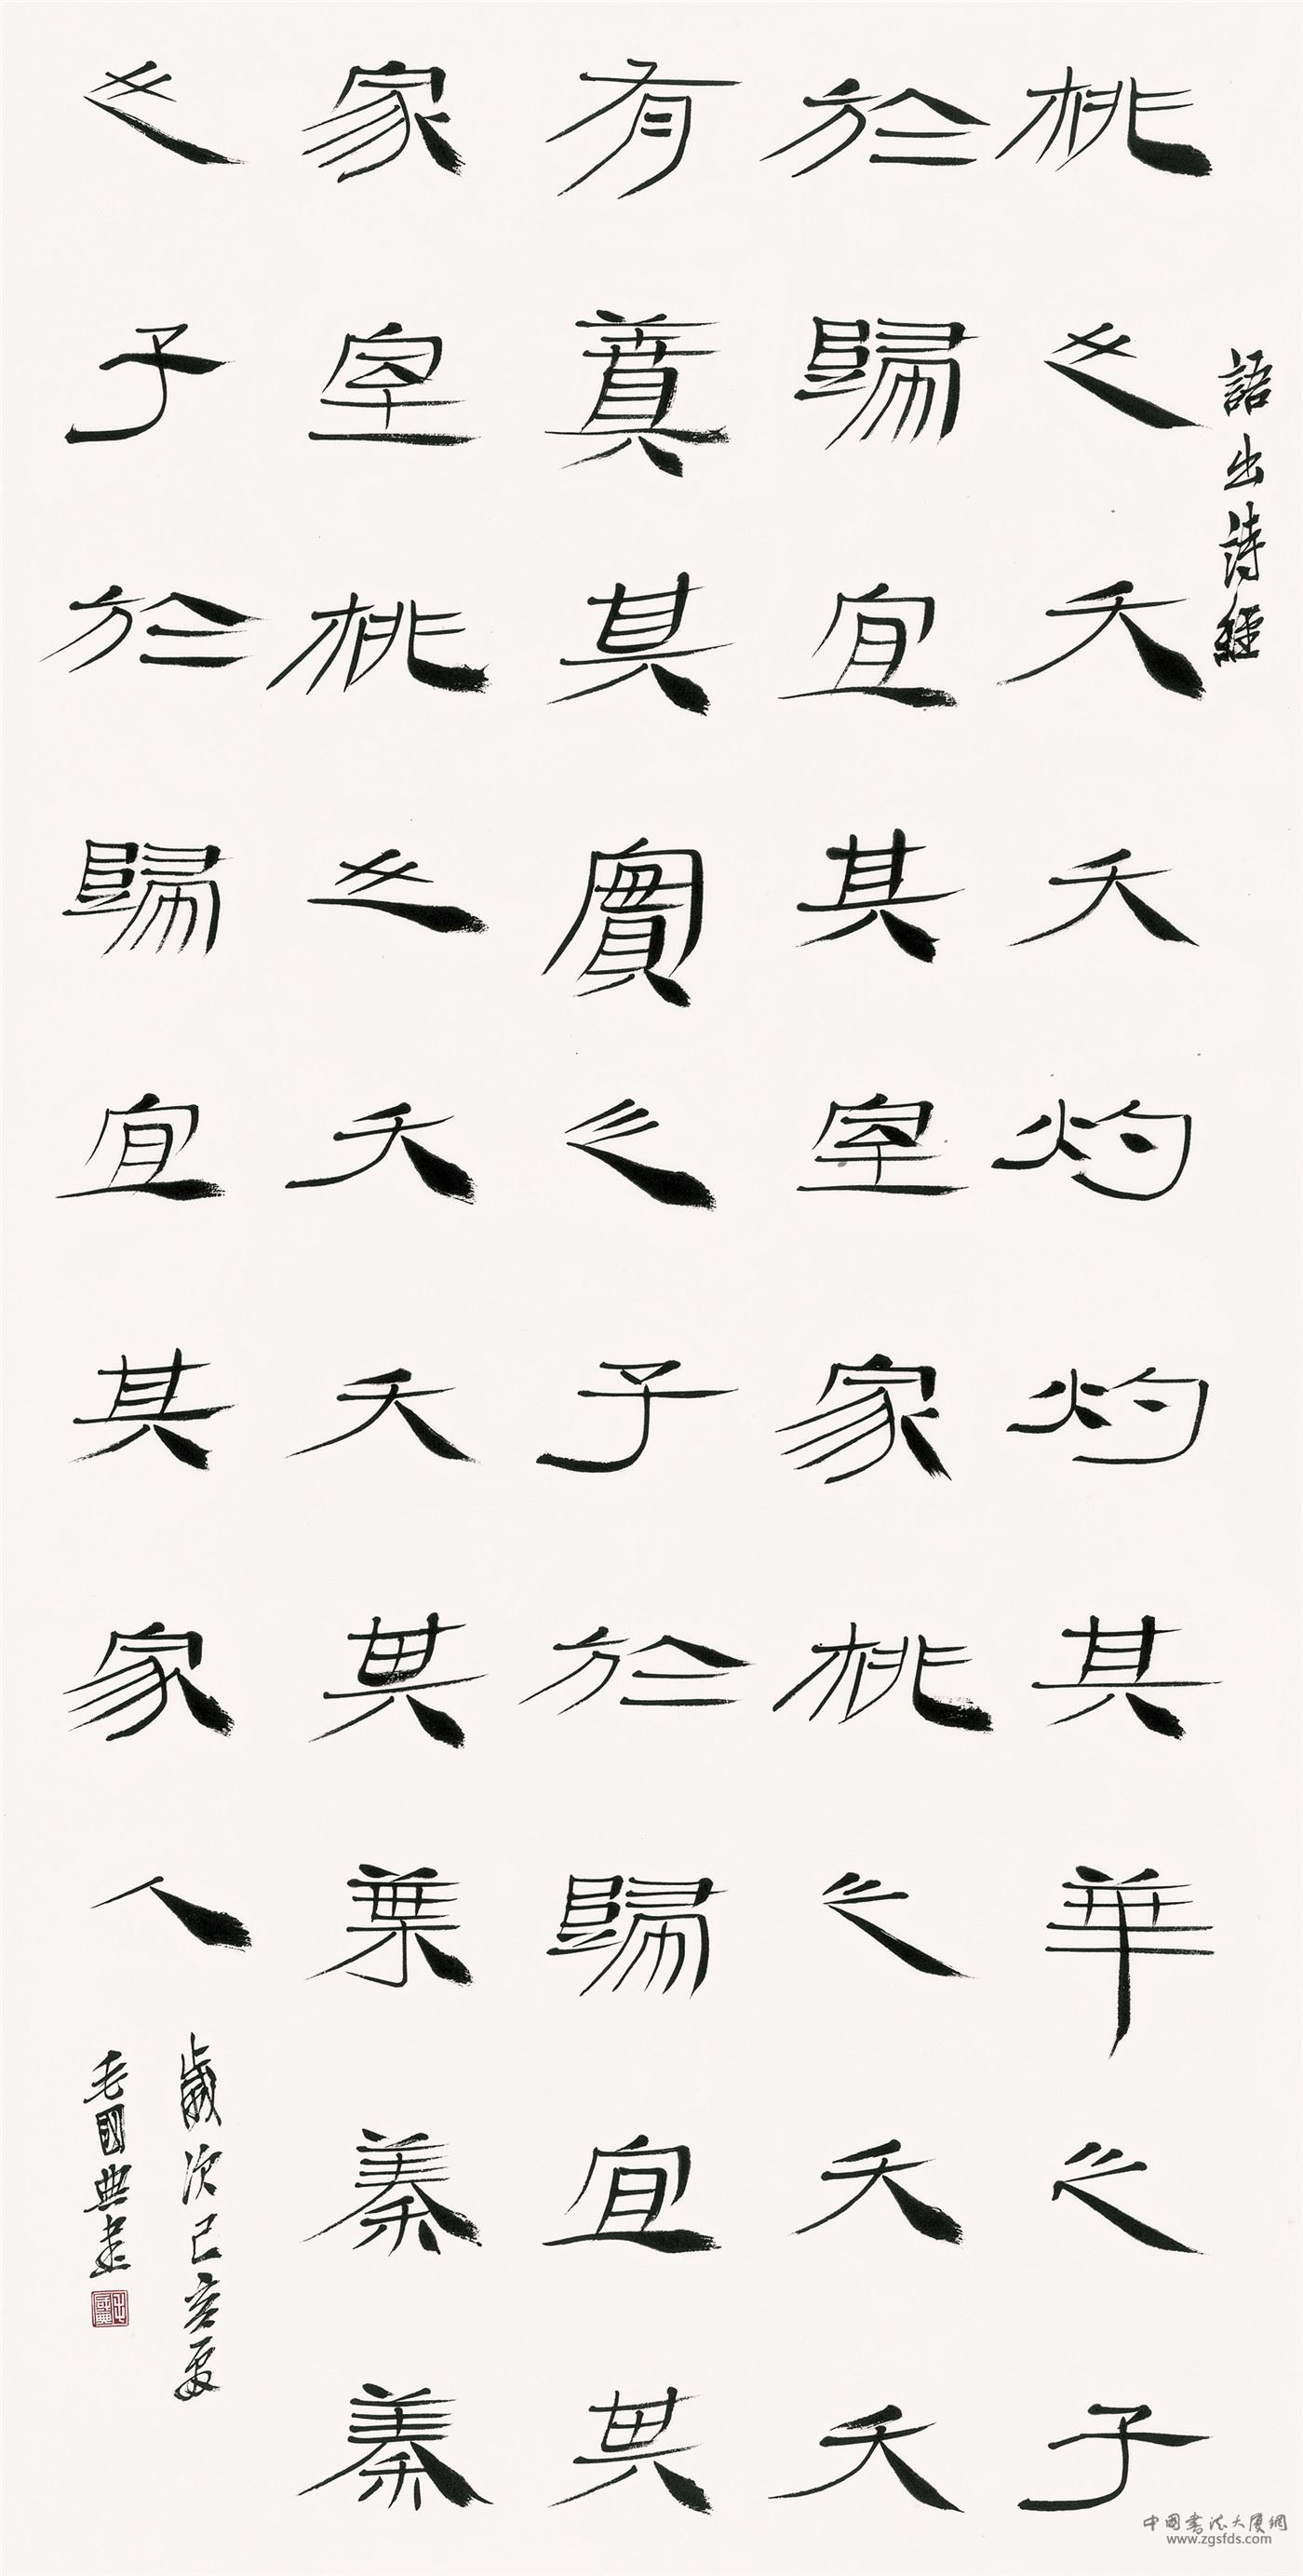 語出詩經
桃之夭夭灼灼其華之子
於歸宜其室家桃之夭夭
有蕡其實之子於歸宜其
家室桃之夭夭其葉蓁蓁
之子於歸宜其家人
歲次己亥夏
毛國典書
中国書法大厦網
www.zgsfds.com